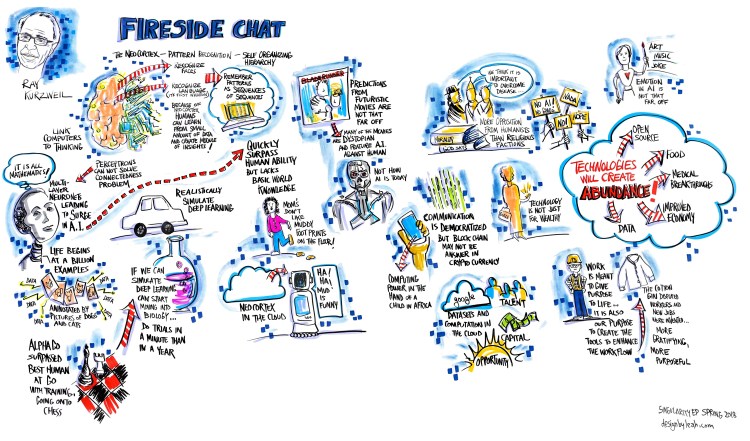 FIRESIDE CHAT
RAY
KURZWEIL
THE NEOCORTEX – PATTERN RECOGNITION – SELF ORGANIZING
HIERARCHY
RECOGNIZE
FACES
RECOGNIZE
LANGUAGE
BECAUSE OF
NEO CORTEX
HUMANS
CAN LEARN
FROM SMALL
AMOUNT OF DATA
AND CREATE MODELS
OF INSIGHTS!
REMEMBER
PATTERNS
AS SEQUENCES
OF SEQUENCES
LINK
COMPUTERS
TO THINKING
IT IS ALL
MATHEMATICS!
PERCEPTRONS
CAN NOT SOLVE
CONNECTEDNESS
PROBLEM
MULTI-
LAYER
NEURONES
LEADING
TO SURGE
IN A.I.
LIFE BEGINS
AT A BILLION
EXAMPLES
DATA
DATA
DATA
DATA
ANNOTATED
PICTURES OF DOGS
AND CATS
ALPHAGO
SURPASSED
BEST HUMAN
AT GO
WITH TRAINING,
GOING ONTO
CHESS
REALISTICALLY
SIMULATE
DEEP LEARNING
IF WE CAN
SIMULATE
DEEP LEARNING
CAN START
MOVING INTO
BIOLOGY...
DO TRIALS IN
A MINUTE THAN
IN A YEAR
QUICKLY
SURPASS
HUMAN ABILITY
BUT LACKS
BASIC WORLD
KNOWLEDGE
MOM'S
DON'T
LIKE
MUDDY
FOOT PRINTS
ON THE FLOOR!
NEOCORTEX
IN THE CLOUD
HA!
HA!
MUD
IS
FUNNY
BLADERUNNER
PREDICTIONS
FROM
FUTURISTIC
MOVIES ARE
NOT THAT
FAR OFF
MANY OF THE MOVIES
ARE DYSTOPIAN
AND FEATURE A.I.
AGAINST HUMAN
NOT HOW
AI IS TODAY
WE THINK IT IS
IMPORTANT
TO OVERCOME
DISEASE
MORALS
MORE OPPOSITION
FROM HUMANISTS
THAN RELIGIOUS
FACTIONS
NO AI
NADA
NO!
NOPE!
ART
MUSIC
JOKE
EMOTION
IN AI IS
NOT THAT
FAR OFF
COMMUNICATION
IS DEMOCRATIZED
BUT BLOCK CHAIN
MAY NOT BE
ANSWER IN
CRYPTO CURRENCY
COMPUTING
POWER IN THE
HAND OF A
CHILD IN AFRICA
TECHNOLOGY
IS NOT JUST
FOR WEALTHY
google
DATASETS AND
COMPUTATION IN
THE CLOUD
TALENT
CAPITAL
OPPORTUNITY
TECHNOLOGIES
WILL CREATE
ABUNDANCE!
OPEN
SOURCE
FOOD
MEDICAL
BREAKTHROUGHS
IMPROVED
ECONOMY
DATA
WORK
IS MEANT
TO GIVE
PURPOSE
TO LIFE...
IT IS ALSO
OUR PURPOSE
TO CREATE THE
TOOLS TO ENHANCE
THE WORKFLOW
THE COTTON
GIN DISPUTED
WORKERS AND
NEW JOBS
WERE
MORE
GRATIFYING,
MORE
PURPOSEFUL
SINGULARITY ED SPRING 2018
designbyleah.com